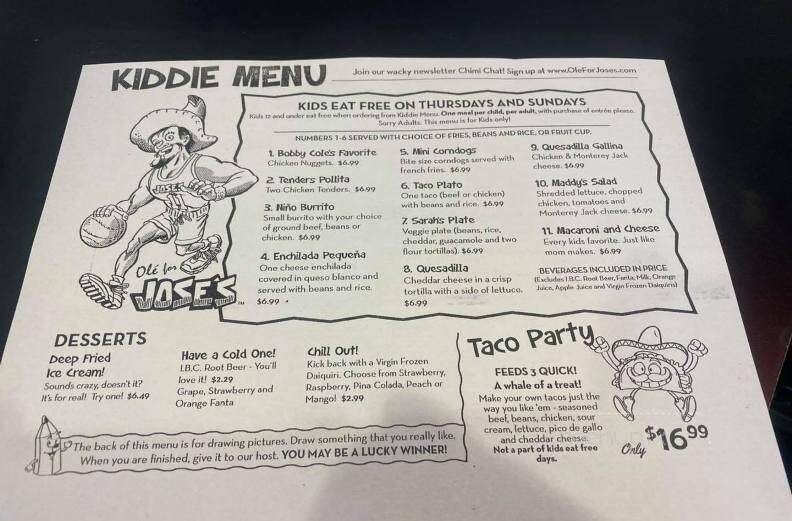 KIDDIE MENU
Join our wacky newsletter Chimi Chat! Sign up at www.OleForJoses.com
KIDS EAT FREE ON THURSDAYS AND SUNDAYS
Kids 12 and under eat free when ordering from Kiddie Menu. One meal per child, per adult, with purchase of entrée please.
Sorry Adults. This menu is for Kids only!
NUMBERS 1-6 SERVED WITH CHOICE OF FRIES, BEANS AND RICE, OR FRUIT CUP.
1. Bobby Cole's Favorite
Chicken Nuggets. $6.99
2. Tenders Pollita
Two Chicken Tenders. $6.99
3. Niño Burrito
Small burrito with your choice
of ground beef, beans or
chicken. $6.99
4. Enchilada Pequeña
One cheese enchilada
covered in queso blanco and
served with beans and rice.
$6.99
5. Mini Corndogs
Bite size corndogs served with
french fries. $6.99
6. Taco Plato
One taco (beef or chicken)
with beans and rice. $6.99
7. Sarah's Plate
Veggie plate (beans, rice,
cheddar, guacamole and two
flour tortillas). $6.99
8. Quesadilla
Cheddar cheese in a crisp
tortilla with a side of lettuce.
$6.99
9. Quesadilla Gallina
Chicken & Monterey Jack
cheese. $6.99
10. Maddy's Salad
Shredded lettuce, chopped
chicken, tomatoes and
Monterey Jack cheese. $6.99
11. Macaroni and Cheese
Every kids favorite. Just like
mom makes. $6.99
BEVERAGES INCLUDED IN PRICE
(Excludes I.B.C. Root Beer, Fanta, Milk, Orange
Juice, Apple Juice and Virgin Frozen Daiquiris)
JOSE'S
11
Olé for
JOSE'S
TM
DESSERTS
Deep Fried
Ice Cream!
Sounds crazy, doesn't it?
It's for real! Try one! $6.49
Have a Cold One!
I.B.C. Root Beer - You'll
love it! $2.29
Grape, Strawberry and
Orange Fanta
Chill Out!
Kick back with a Virgin Frozen
Daiquiri. Choose from Strawberry,
Raspberry, Pina Colada, Peach or
Mango! $2.99
Taco Party
FEEDS 3 QUICK!
A whale of a treat!
Make your own tacos just the
way you like 'em - seasoned
beef, beans, chicken, sour
cream, lettuce, pico de gallo
and cheddar cheese.
Not a part of kids eat free
days.
Only $16.99
The back of this menu is for drawing pictures. Draw something that you really like.
When you are finished, give it to our host. YOU MAY BE A LUCKY WINNER!